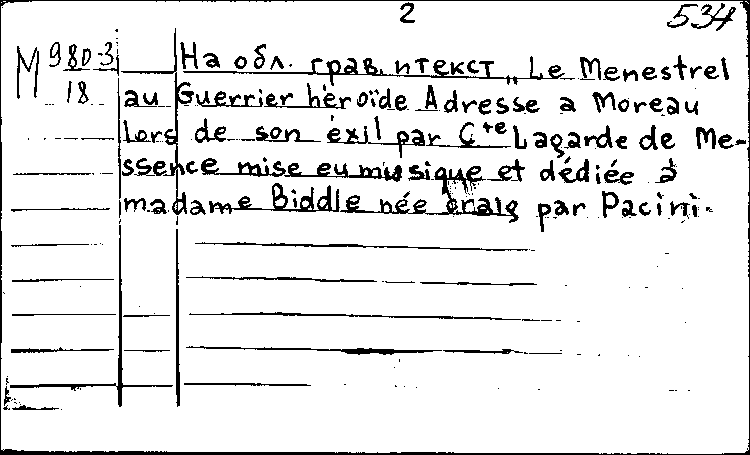 2
534
М 980-3
18
На обл. грав. и текст „Le Menestrel
au Guerrier hèroïde Adresse a Moreau
lors de son éxil par Cte Lagarde de Me-
ssence mise eu musique et dédiée à
madame Biddle née craig par Pacini.